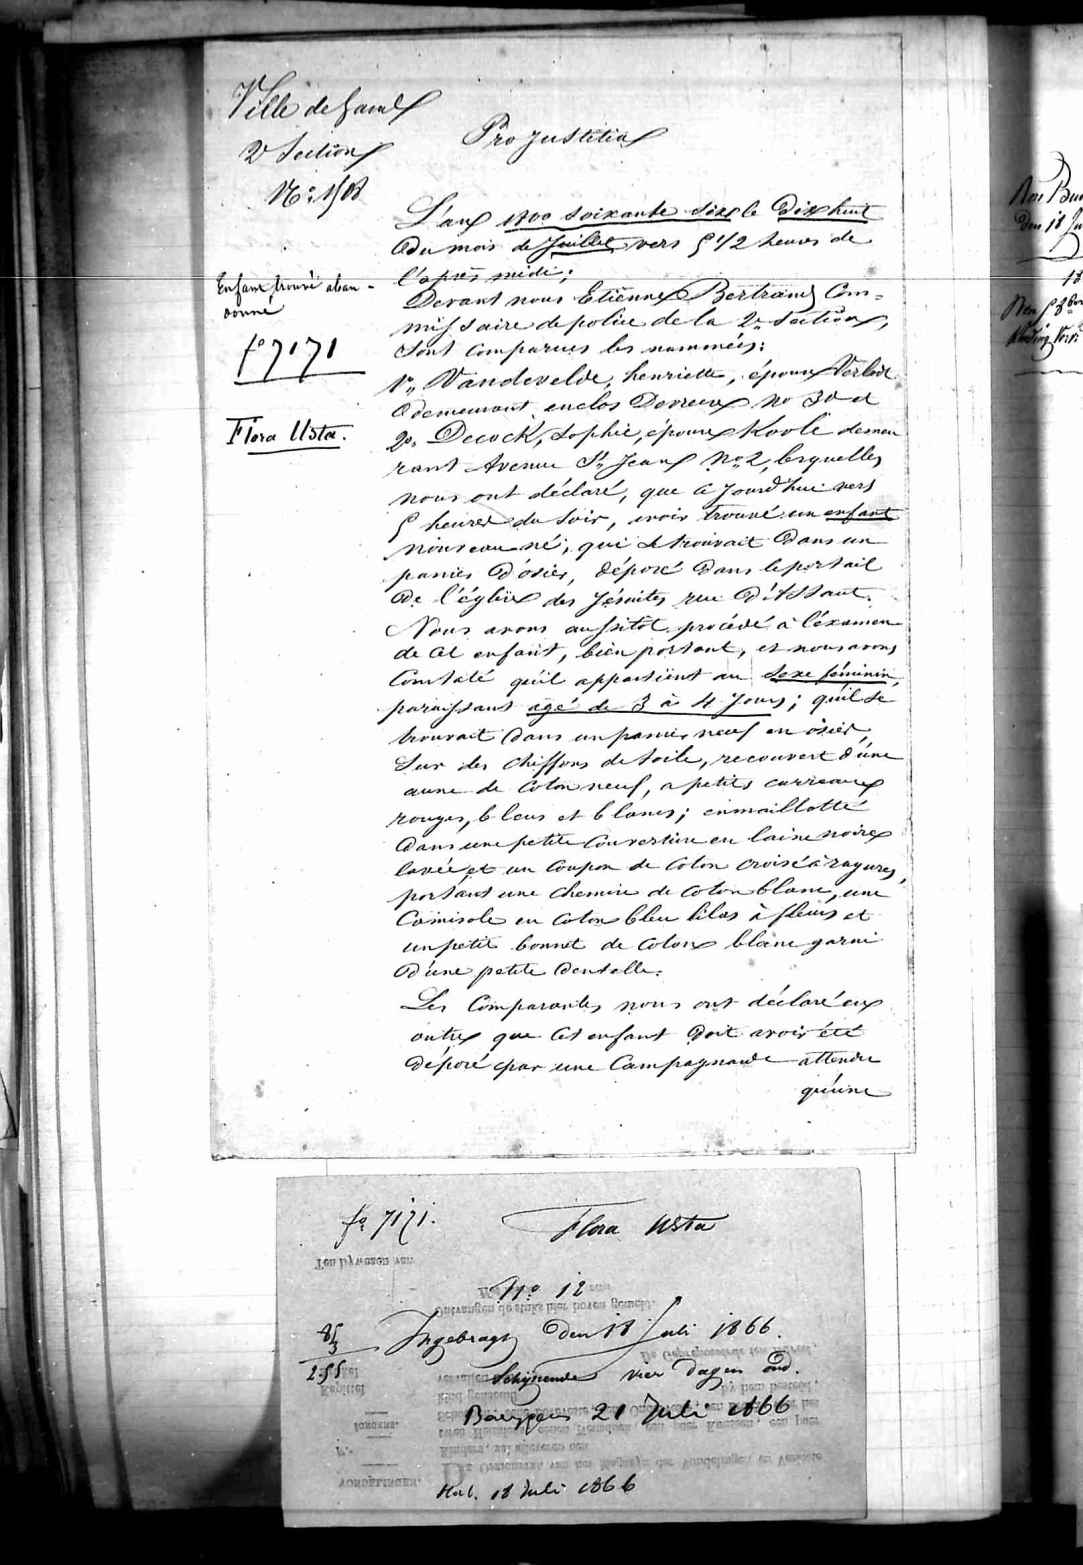 Ville de Gand
2e Section
Pro Justitia
L'an 1800 soixante six le dix huit
du mois de Juillet vers 5 1/2 heures de
l'après midi;
Enfant trouvé aban-
donné
fo 7171
Flora Usta.
Devant nous Etienne Bertrand Com=
missaire de police de la 2e Section,
sont comparues les nommées:
1o, Vandevelde, henriette, épouse
demeurant enclos Devreese no 30 et
2o, Decock, Sophie, épouse Koole demeu
rant Avenue St Jean No 2, lesquelles
nous ont déclaré, que ce jourd'hui vers
5 heures du soir, avoir trouvé un enfant
nouveau né, qui se trouvait dans un
panier d'osier, déposé dans le portail
de l'église des Jésuites rue d'Assaut.
Nous avons aussitôt procédé à l'éxamen
de cet enfant, bien portant, et nous avons
Constaté qu'il appartient au sexe féminin,
paraissant agé de 3 à 4 jours; qu'il se
trouvait dans un panier neuf en osier,
sur des chiffons de toile, recouvert d'une
aune de coton neuf, a petits carreaux
rouges, bleus et blancs; enmaillotté
dans une petite couverture en laine noire
lavée et un coupon de coton croisé à rayures,
portant une chemise de coton blanc, une
Camisole en coton bleu lilas à fleurs et
un petit bonnet de coton blanc garni
d'une petite dentelle.
Les Comparantes nous ont déclaré en
outre que cet enfant doit avoir été
déposé par une Campagnarde attendu
qu'une
fo 7171.
Flora Usta
No 12
Ingebragt den 18 Juli 1866.
Schijnende vier dagen oud.
21 Juli 1866
18 Juli 1866